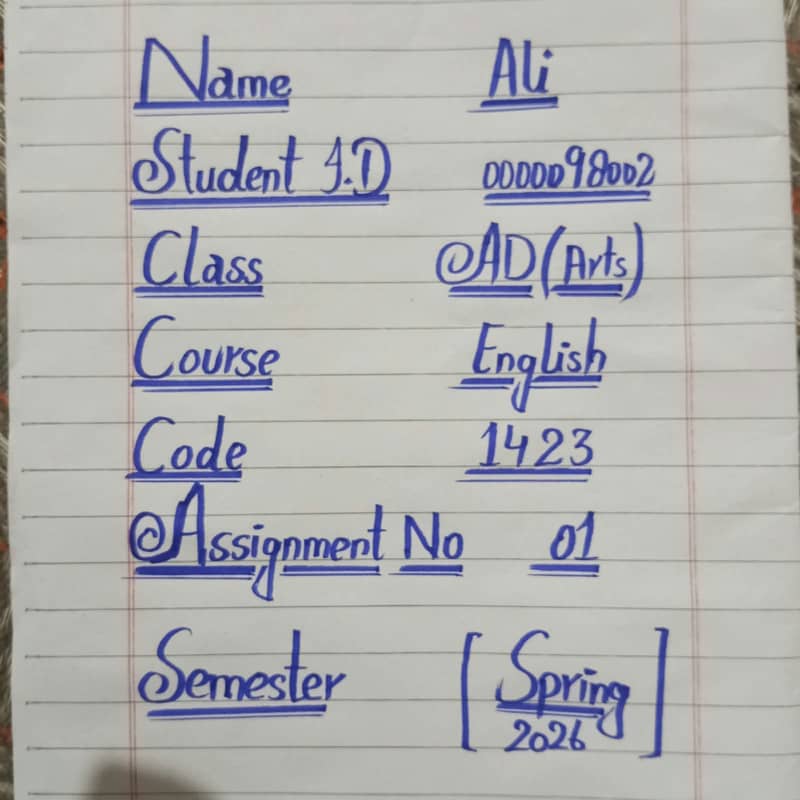 Name Ali
Student I.D 0000098002
Class AD(Arts)
Course English
Code 1423
Assignment No 01
Semester [Spring
2026]